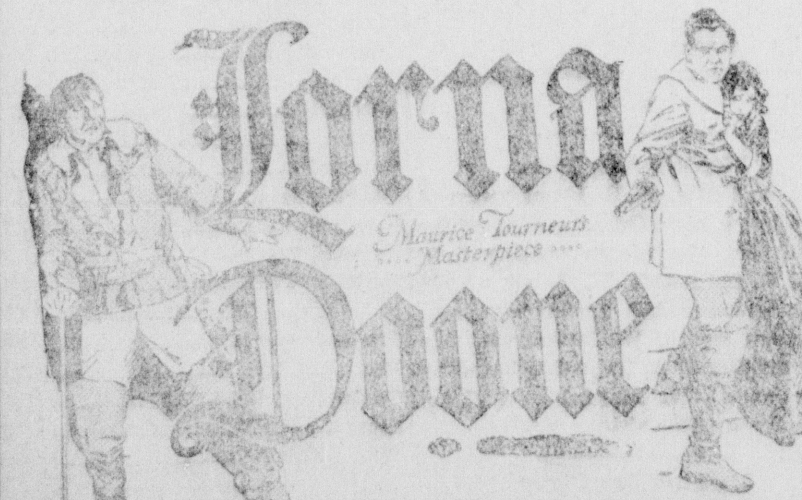 Lorna
Maurice Tourneur's
Masterpiece
Doone